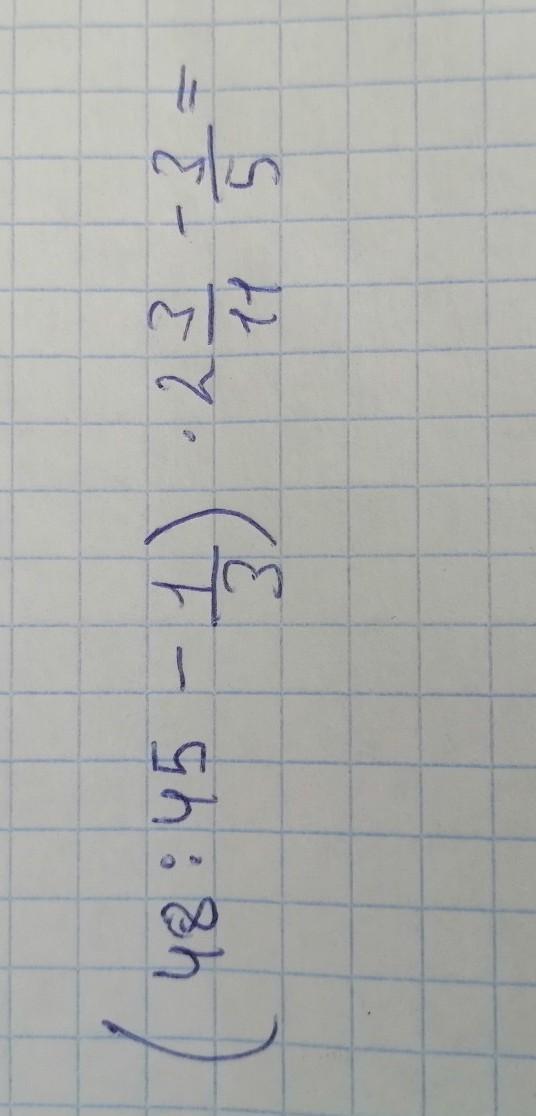 (48 : 45 - 1/3) · 2 3/11 - 3/5 =